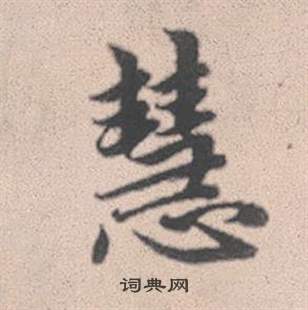 慧
词典网